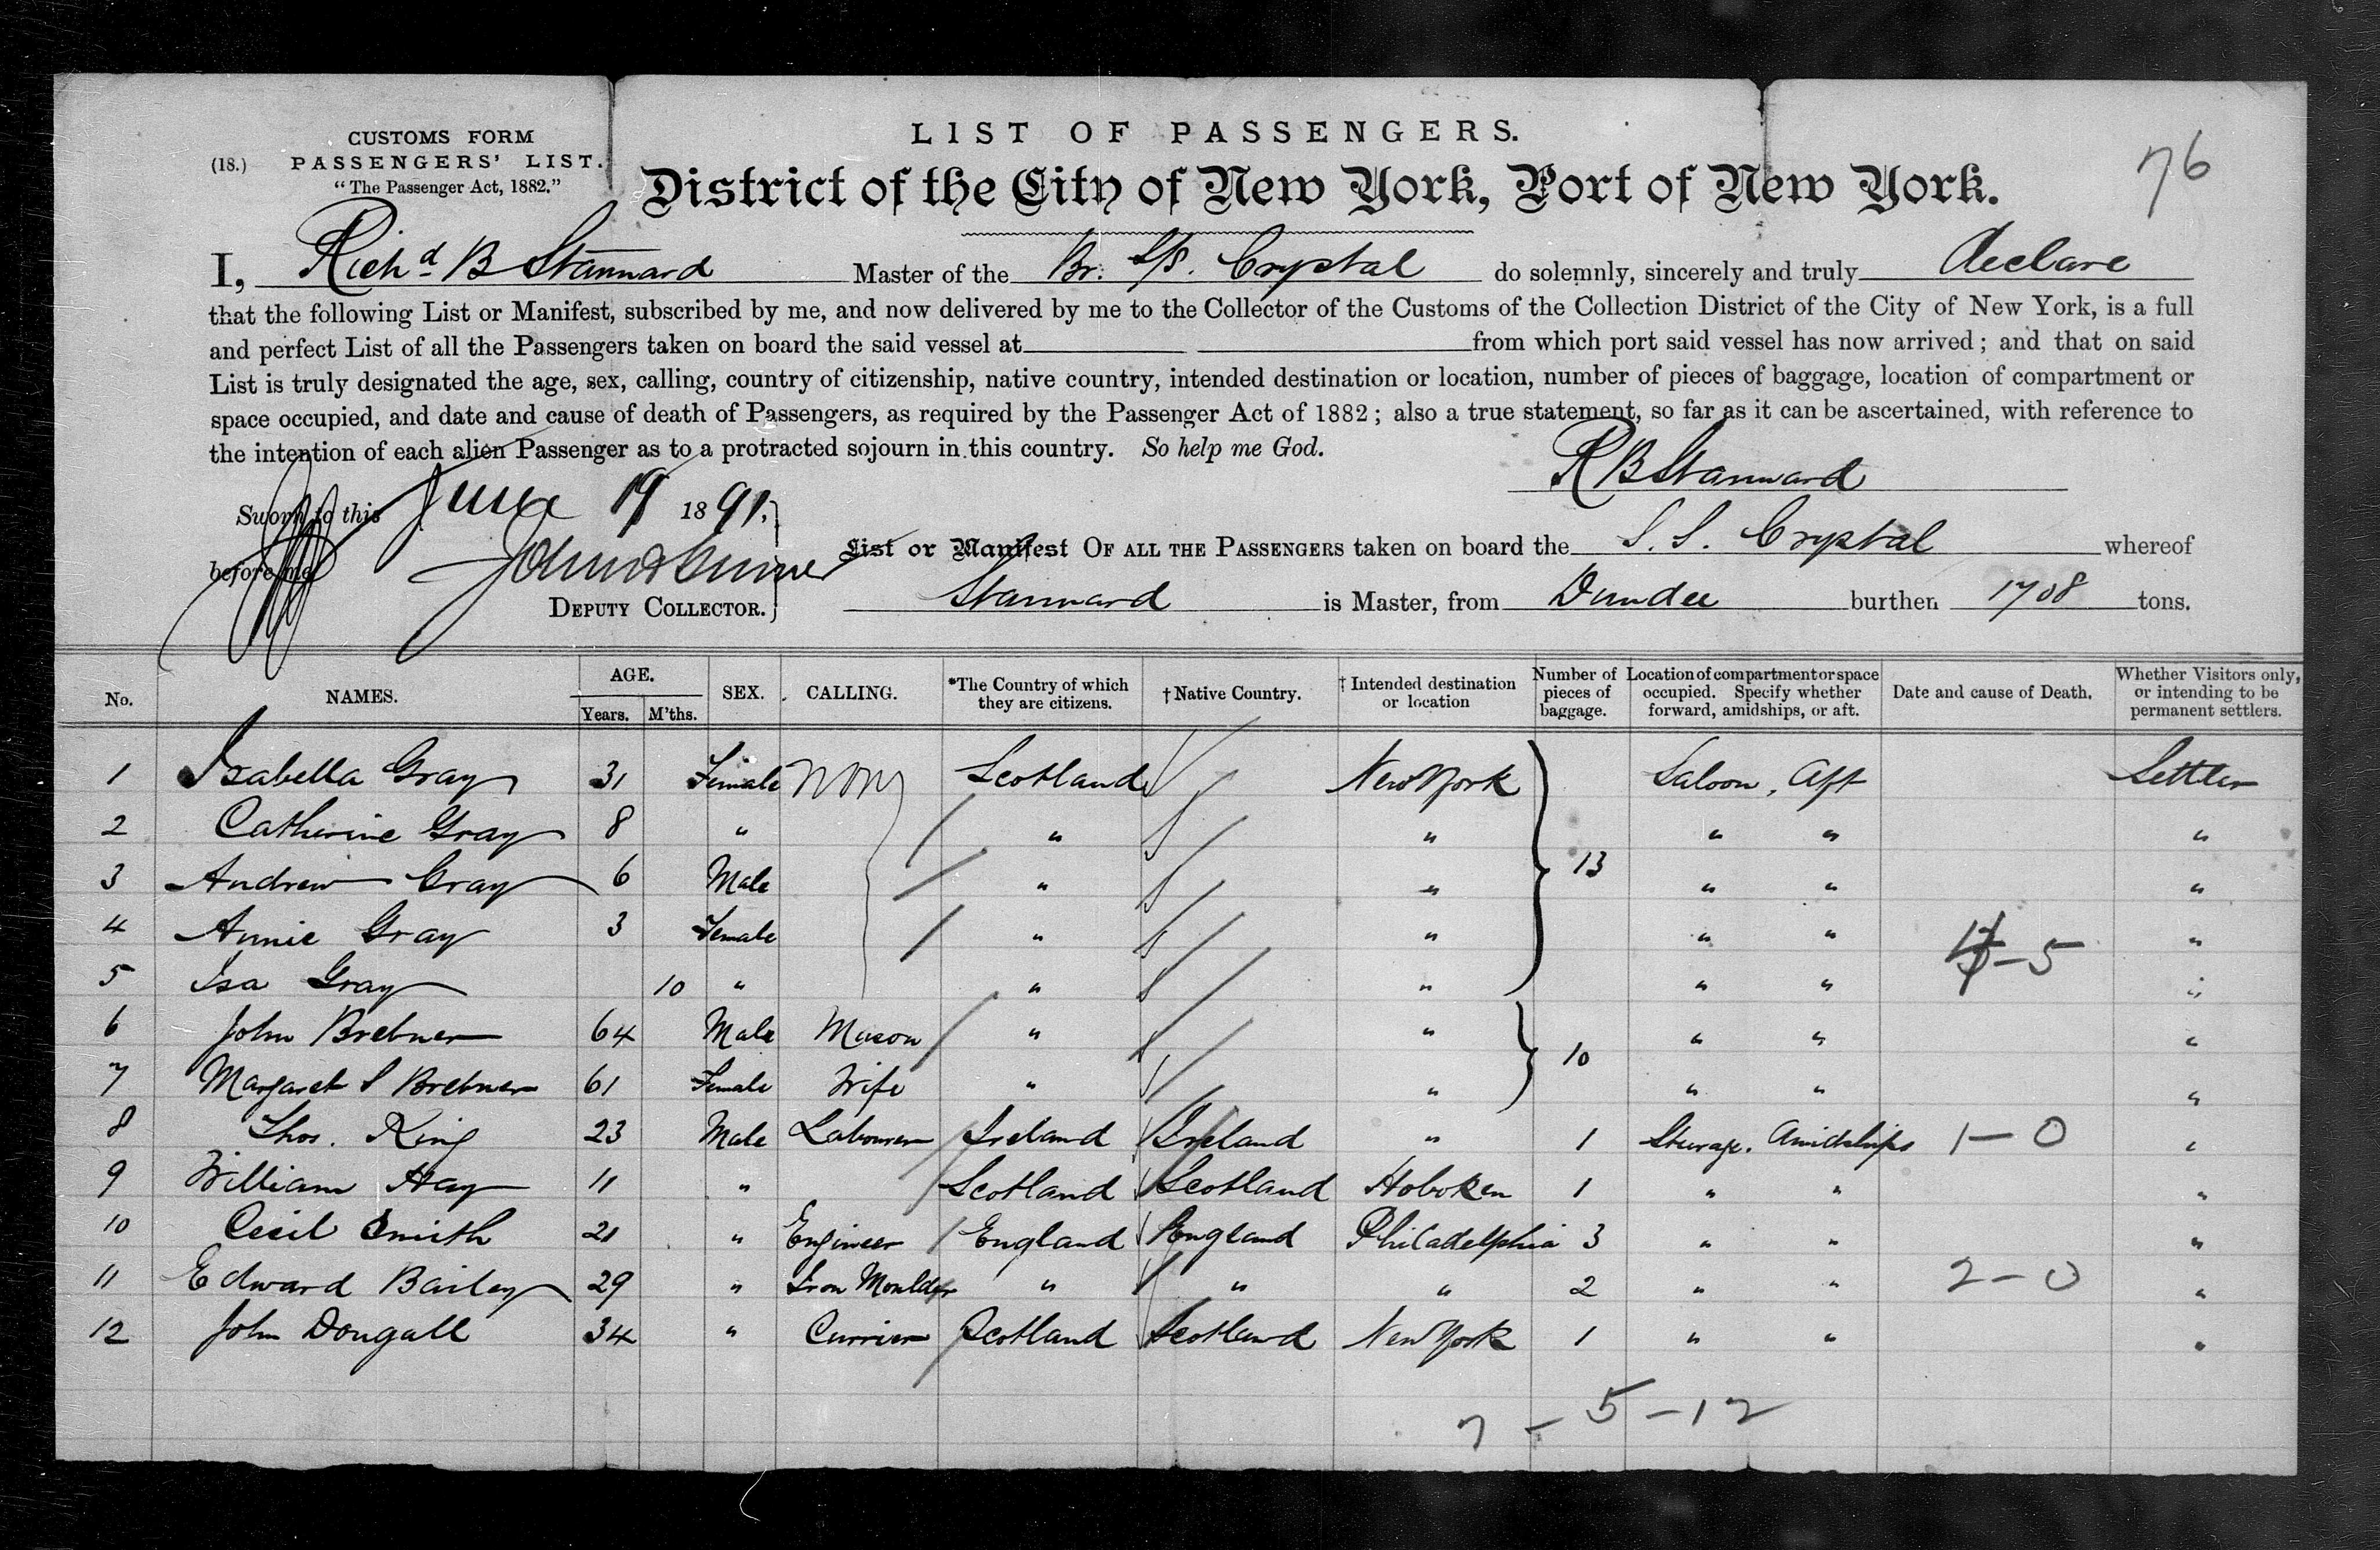 CUSTOMS FORM
(18.) PASSENGERS' LIST.
"The Passenger Act, 1882."
LIST OF PASSENGERS.
76
District of the City of New York, Port of New York.
I, Richd B Stannard Master of the Br. S/S. Crystal do solemnly, sincerely and truly declare
that the following List or Manifest, subscribed by me, and now delivered by me to the Collector of the Customs of the Collection District of the City of New York, is a full
and perfect List of all the Passengers taken on board the said vessel at from which port said vessel has now arrived; and that on said
List is truly designated the age, sex, calling, country of citizenship, native country, intended destination or location, number of pieces of baggage, location of compartment or
space occupied, and date and cause of death of Passengers, as required by the Passenger Act of 1882; also a true statement, so far as it can be ascertained, with reference to
the intention of each alien Passenger as to a protracted sojourn in this country. So help me God.
R B Stannard
Sworn to this June 19 1891.
before me
DEPUTY COLLECTOR.
List or Manifest OF ALL THE PASSENGERS taken on board the S. S. Crystal whereof
Stannard is Master, from Dundee burthen 1708 tons.
No. NAMES. AGE. Years. M'ths. SEX. CALLING. *The Country of which they are citizens. †Native Country. †Intended destination or location Number of pieces of baggage. Location of compartment or space occupied. Specify whether forward, amidships, or aft. Date and cause of Death. Whether Visitors only, or intending to be permanent settlers.
1 Isabella Gray 31 Female Non Scotland New York Saloon, Aft Settler
2 Catherine Gray 8 " " " " " "
3 Andrew Gray 6 Male " " 13 " " "
4 Annie Gray 3 Female " " " " -5 "
5 Isa Gray 10 " " " " " "
6 John Brebner 64 Male Mason " " " " "
7 Margaret S Brebner 61 Female Wife " " 10 " " "
8 Thos. King 23 Male Labourer Ireland Ireland " 1 Steerage. Amidships 1-0 "
9 William Hay 11 " Scotland Scotland Hoboken 1 " " "
10 Cecil Smith 21 " Engineer England England Philadelphia 3 " " "
11 Edward Bailey 29 " Iron Moulder " " " 2 " " 2-0 "
12 John Dougall 34 " Currier Scotland Scotland New York 1 " " "
7-5-12